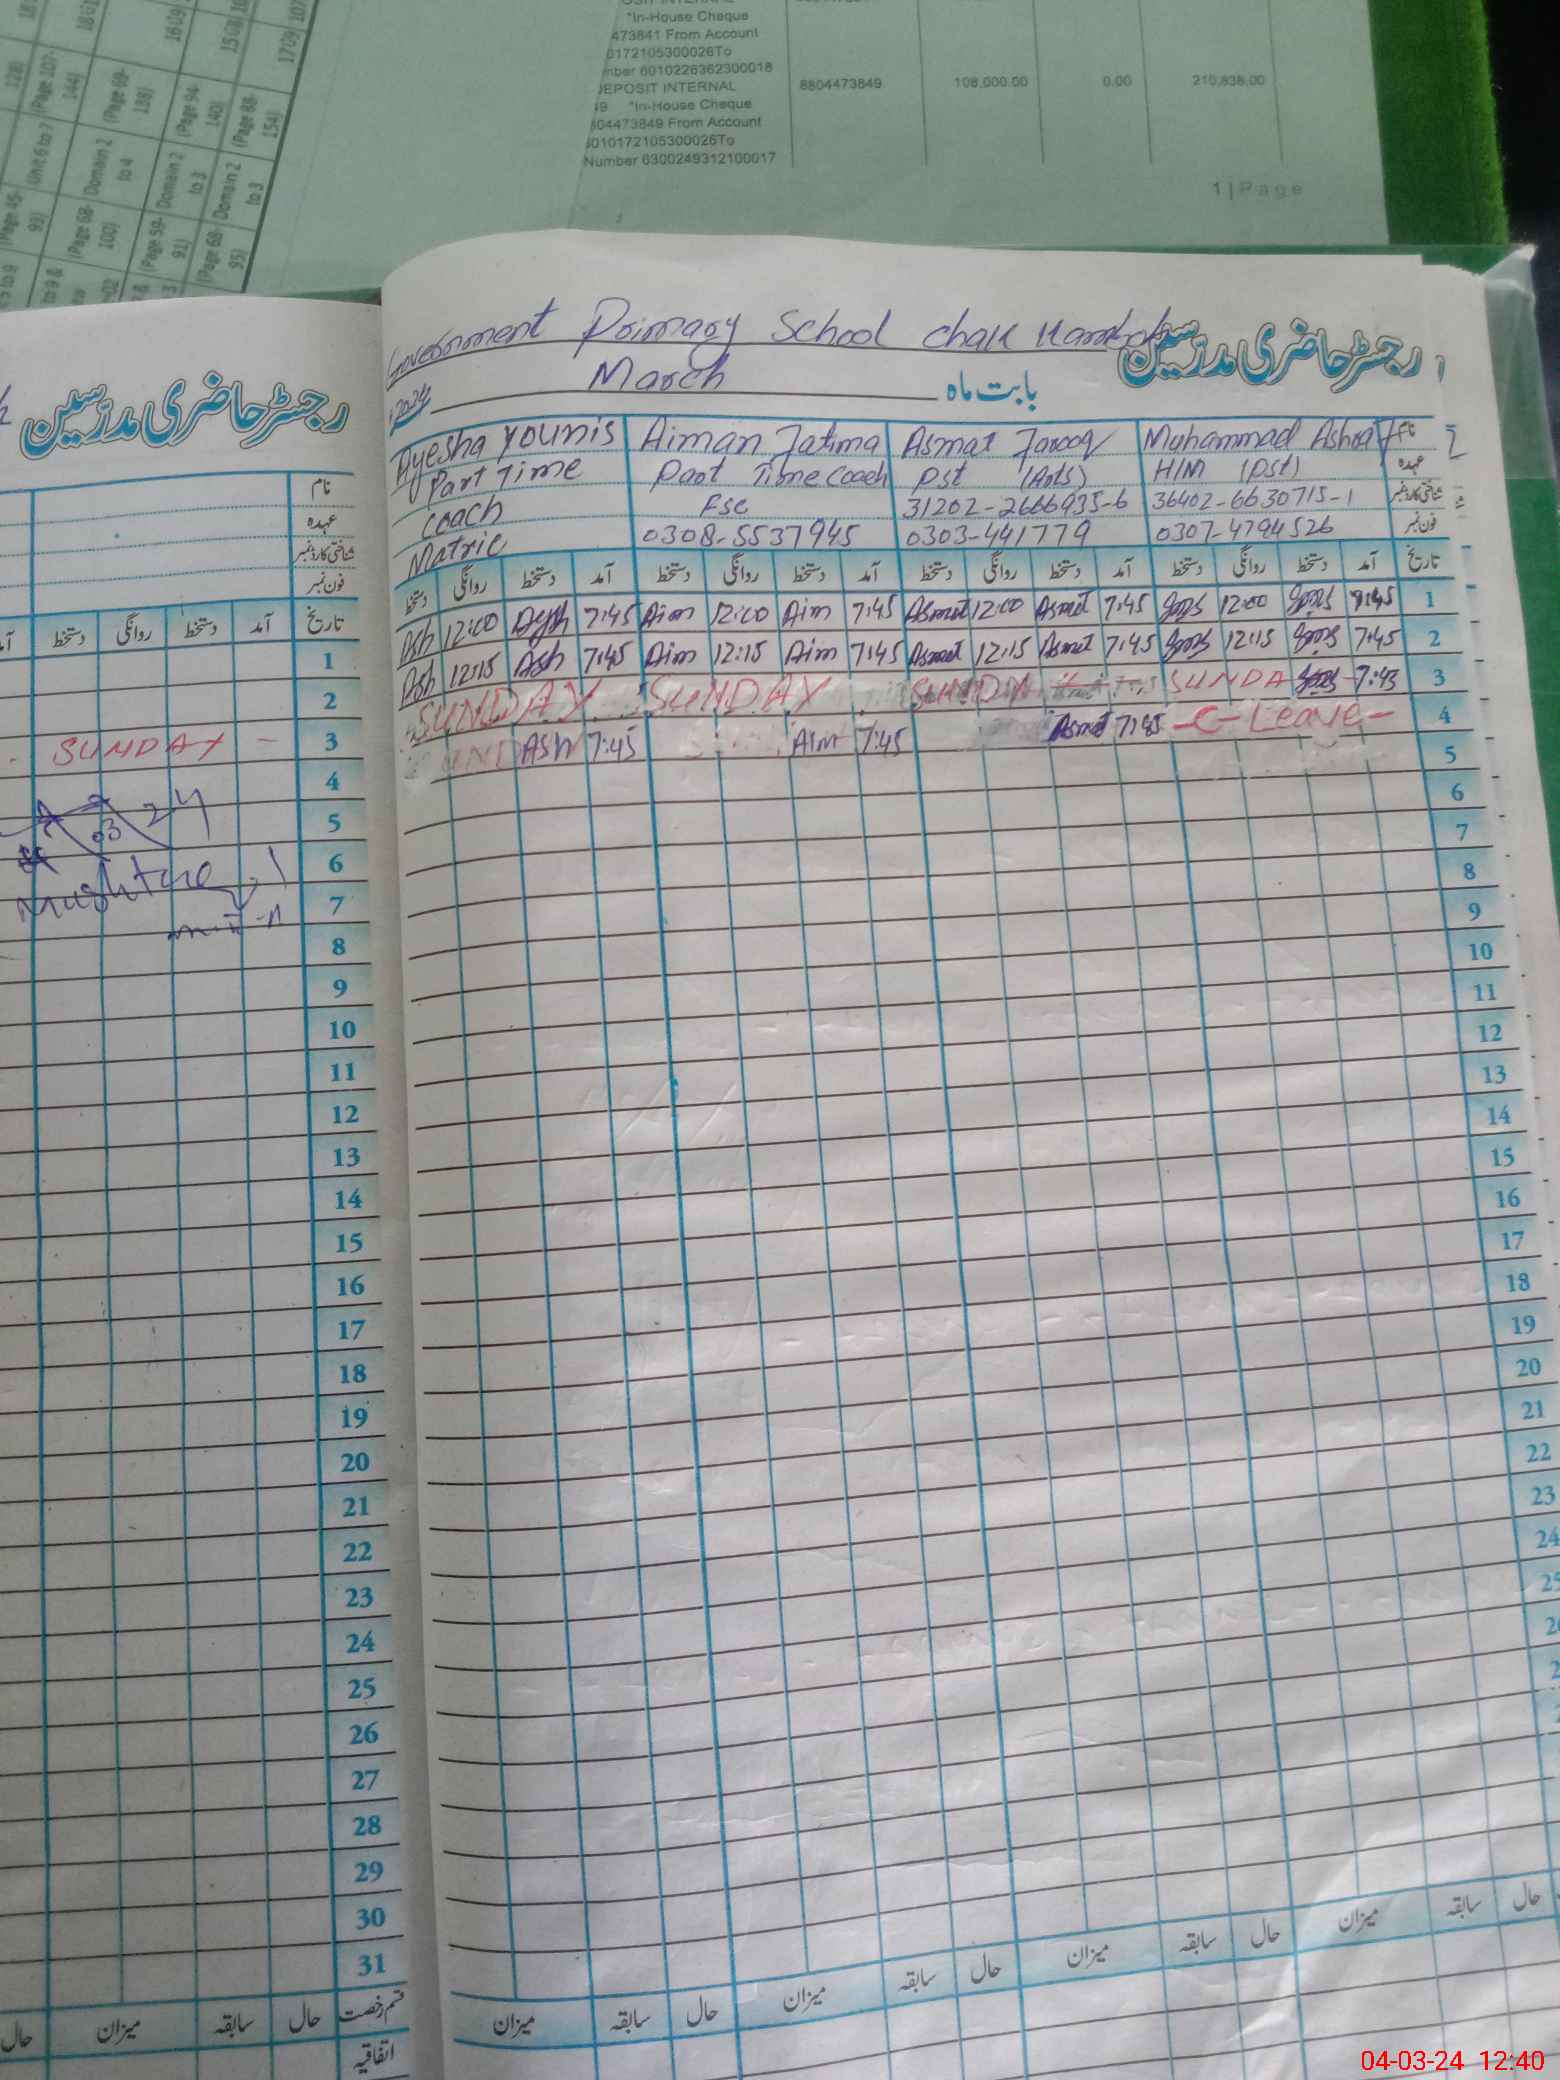 OSIT INTERNAL
"In-House Cheque
473841 From Account
0172105300026To
mber 6010226362300018
DEPOSIT INTERNAL 8804473849 108,000.00 0.00 210,838.00
49 "In-House Cheque
804473849 From Account
0101721053000026To
Number 6300249312100017
1 | Page
Government Primary School Chak
رجسٹر حاضری مدرسین
March بابت ماہ
2024
نام Muhammad Ashraf Asmat Farooq Aiman Fatima Ayesha Younis
عہدہ H/M (Pst) Pst (Arts) Part Time Coach Part Time Coach
شناختی کارڈ نمبر 36402-6630715-1 31202-2666935-6 Fsc Matric
فون نمبر 0307-4794526 0303-441779 0308-5537945
تاریخ آمد دستخط روانگی دستخط آمد دستخط روانگی دستخط آمد دستخط روانگی دستخط آمد دستخط روانگی دستخط
1 7:45 12:00 7:45 Asmat 12:00 Asmat 7:45 Aim 12:00 Aim 7:45 Aysh 12:00 Ash
2 7:45 12:15 7:45 Asmat 12:15 Asmat 7:45 Aim 12:15 Aim 7:45 Ash 12:15 Ash
3 7:45 SUNDA SUNDAY SUNDAY SUNDAY
4 -C- Leave- 7:45 Asmat 7:45 Aim 7:45 Ash
5
6
7
8
9
10
11
12
13
14
15
16
17
18
19
20
21
22
23
24
25
حال سابقہ میزان حال سابقہ میزان حال سابقہ میزان حال سابقہ میزان
رجسٹر حاضری مدرسین
نام
عہدہ
شناختی کارڈ نمبر
فون نمبر
تاریخ آمد دستخط روانگی دستخط
1
2
3 SUNDAY -
4
5 03 24
6
7
8
9
10
11
12
13
14
15
16
17
18
19
20
21
22
23
24
25
26
27
28
29
30
31
قسم رخصت حال سابقہ میزان حال
اتفاقیہ
04-03-24 12:40